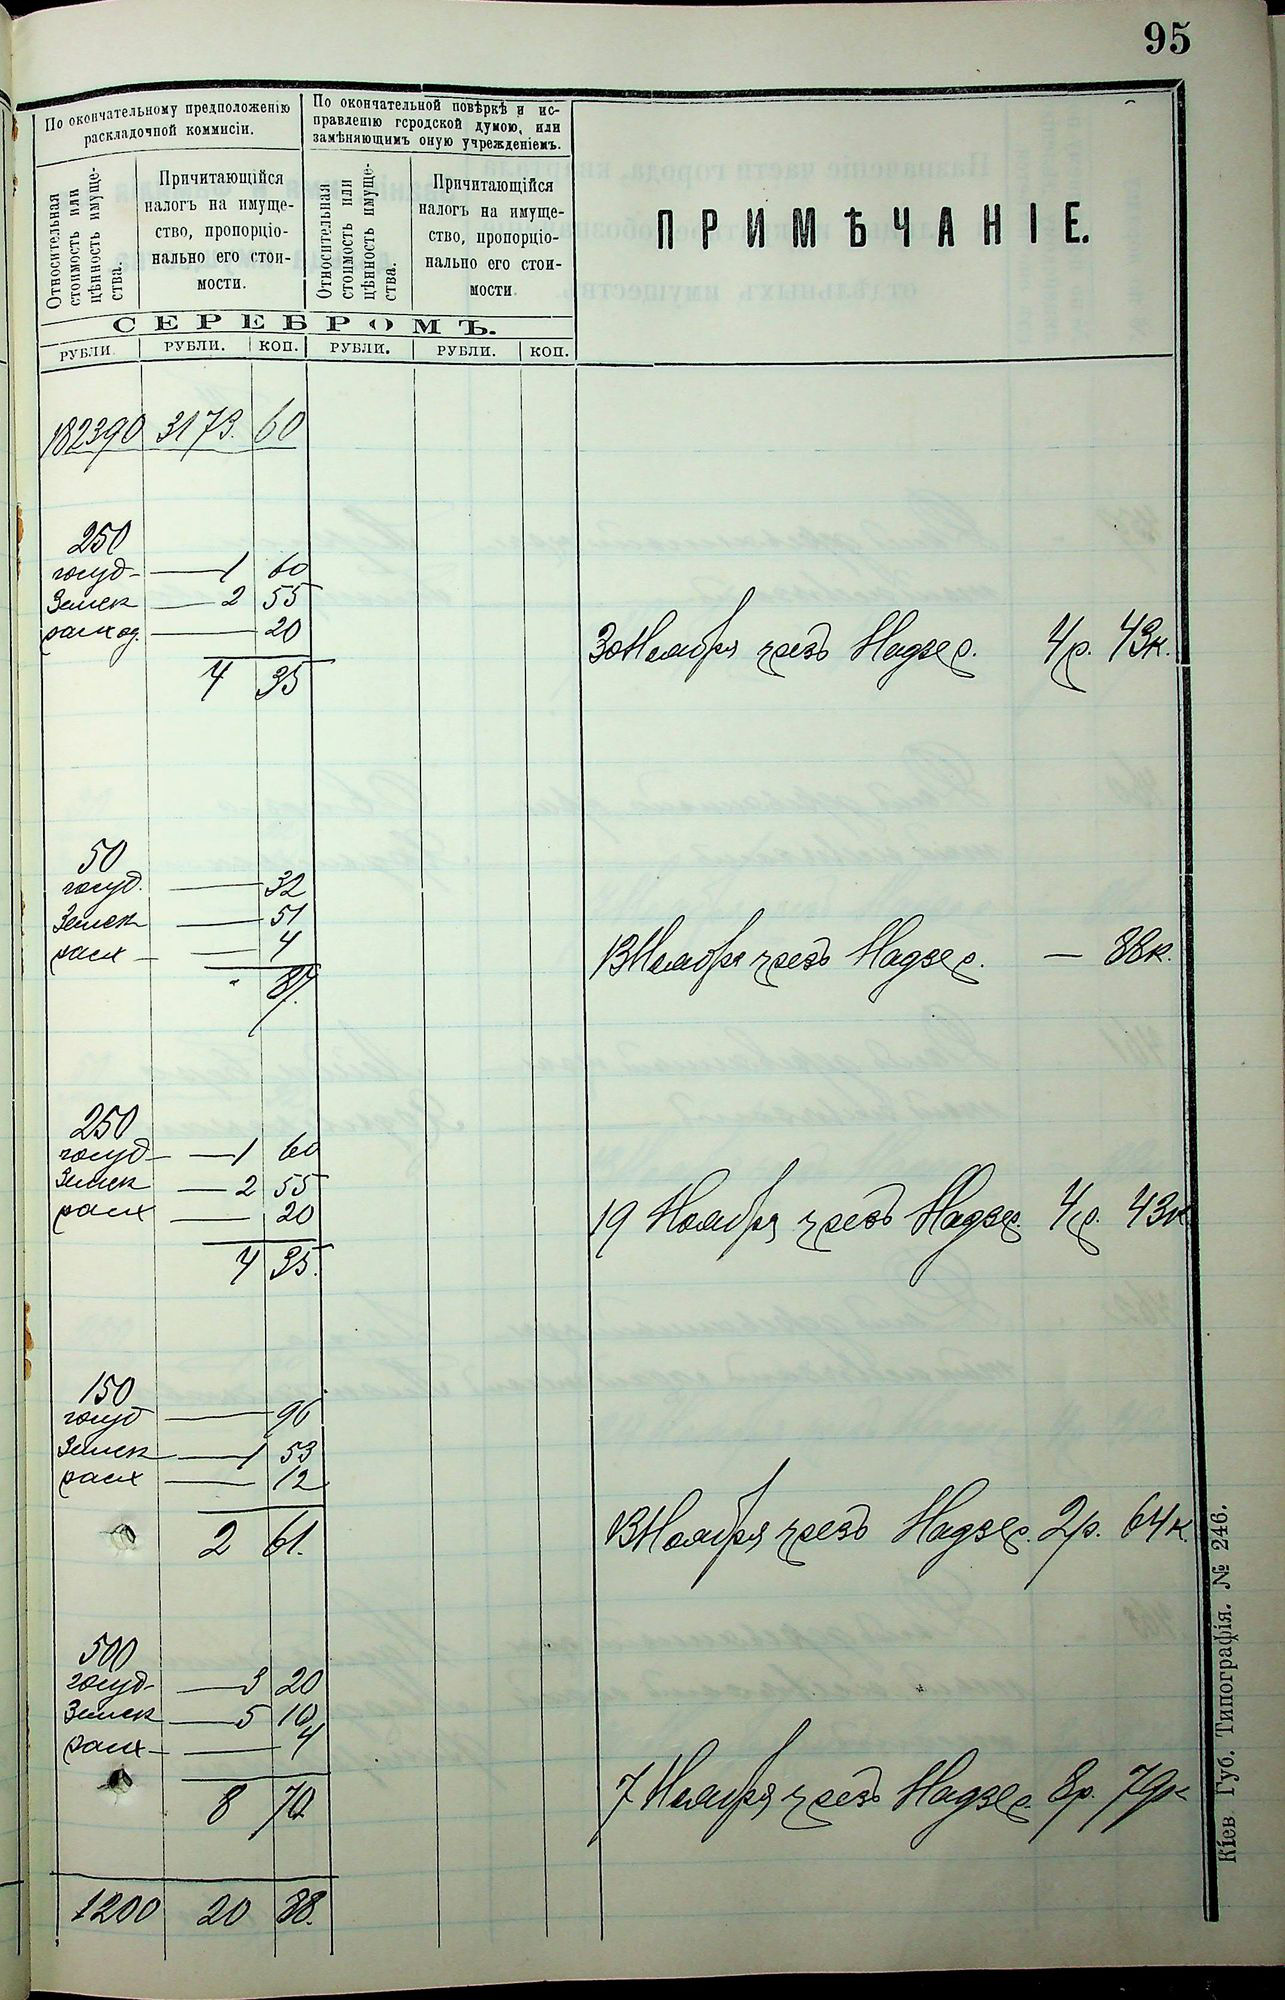 95
По окончательному предположенію
раскладочной коммисіи.
По окончательной повѣркѣ и ис-
правленію городской думою, или
замѣняющимъ оную учрежденіемъ.
Относительная
стоимость или
цѣнность имуще-
ства.
Причитающійся
налогъ на имуще-
ство, пропорціо-
нально его стои-
мости.
Относительная
стоимость или
цѣнность имуще-
ства.
Причитающійся
налогъ на имуще-
ство, пропорціо-
нально его стои-
мости.
ПРИМѢЧАНІЕ.
СЕРЕБРОМЪ.
РУБЛИ. РУБЛИ. КОП. РУБЛИ. РУБЛИ. КОП.
182390 3173. 60
250
госуд — 1 60
Земск — 2 55
расход. — 20
4 35
30 Ноября чрезъ Надзер. 4р. 43к.
50
госуд. — 32
Земск — 51
расх — 4
87.
13 Ноября чрезъ Надзер. — 88к.
250
госуд — 1 60
Земск — 2 55
расх — 20
4 35.
19 Ноября чрезъ Надзер. 4р. 43к
150
госуд — 96
Земск — 1 53
расх — 12
2 61.
13 Ноября чрезъ Надзер. 2р. 64к.
500
госуд — 3 20
Земск — 5 10
расх — 4
8 70
7 Ноября чрезъ Надзер. 8р. 79к
1200 20 88.
Кіев Губ. Типографія. № 246.